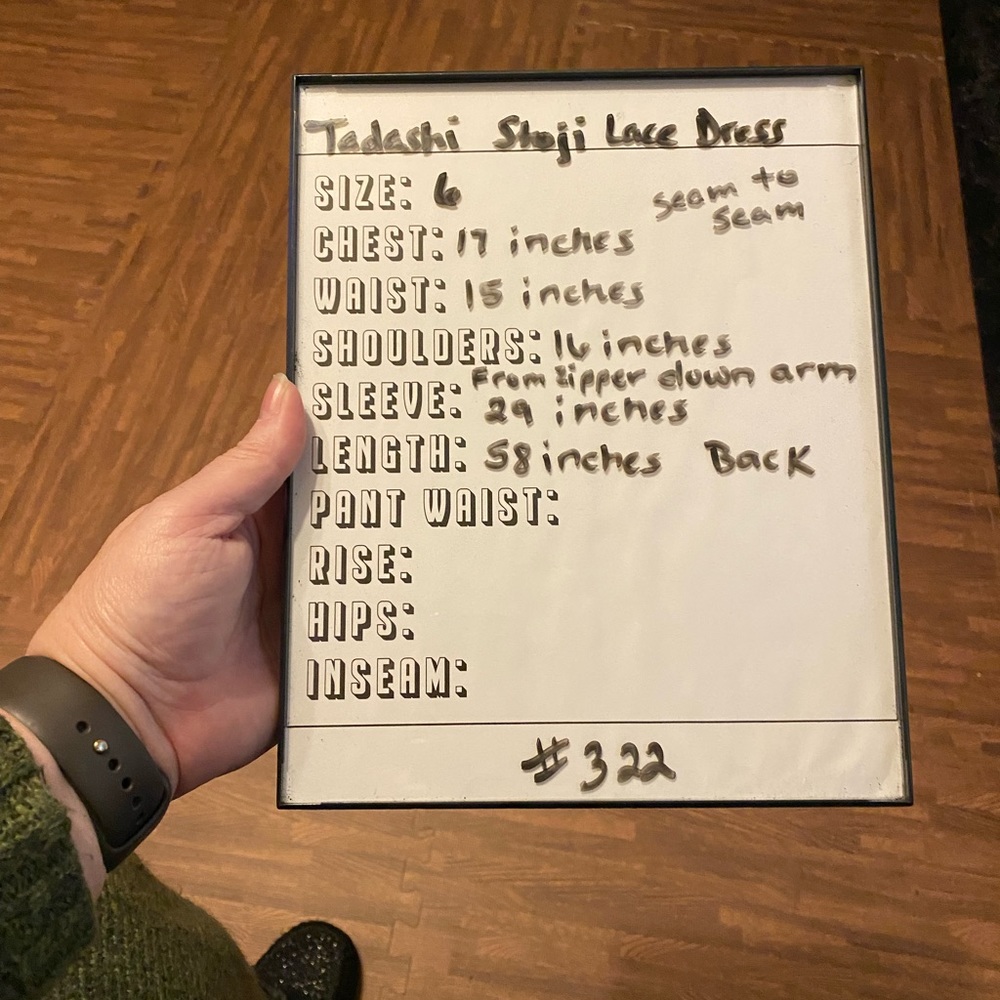 Tadashi Shoji Lace Dress
SIZE: 6
seam to
seam
CHEST: 17 inches
WAIST: 15 inches
SHOULDERS: 16 inches
From zipper down arm
SLEEVE: 29 inches
LENGTH: 58 inches Back
PANT WAIST:
RISE:
HIPS:
INSEAM:
#322